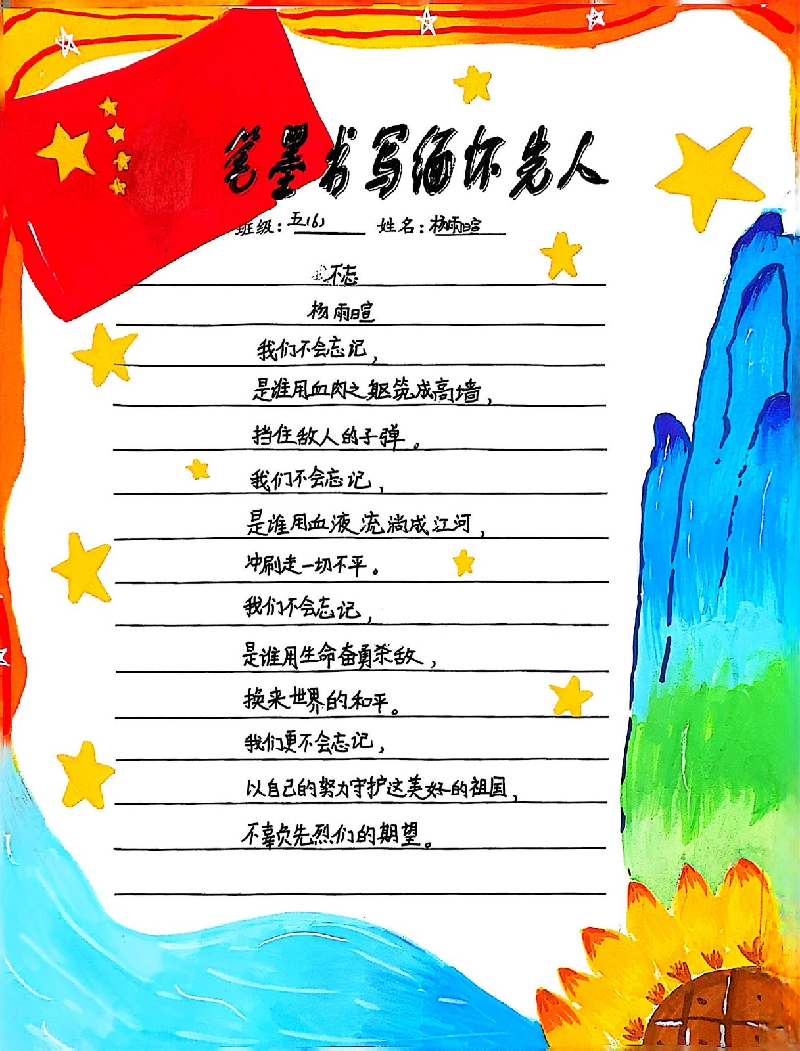 笔墨书写缅怀先人
班级：五(6) 姓名：杨雨暄
我不忘
杨雨暄
我们不会忘记，
是谁用血肉之躯筑成高墙，
挡住敌人的子弹。
我们不会忘记，
是谁用血液流淌成江河，
冲刷走一切不平。
我们不会忘记，
是谁用生命奋勇杀敌，
换来世界的和平。
我们更不会忘记，
以自己的努力守护这美好的祖国，
不辜负先烈们的期望。